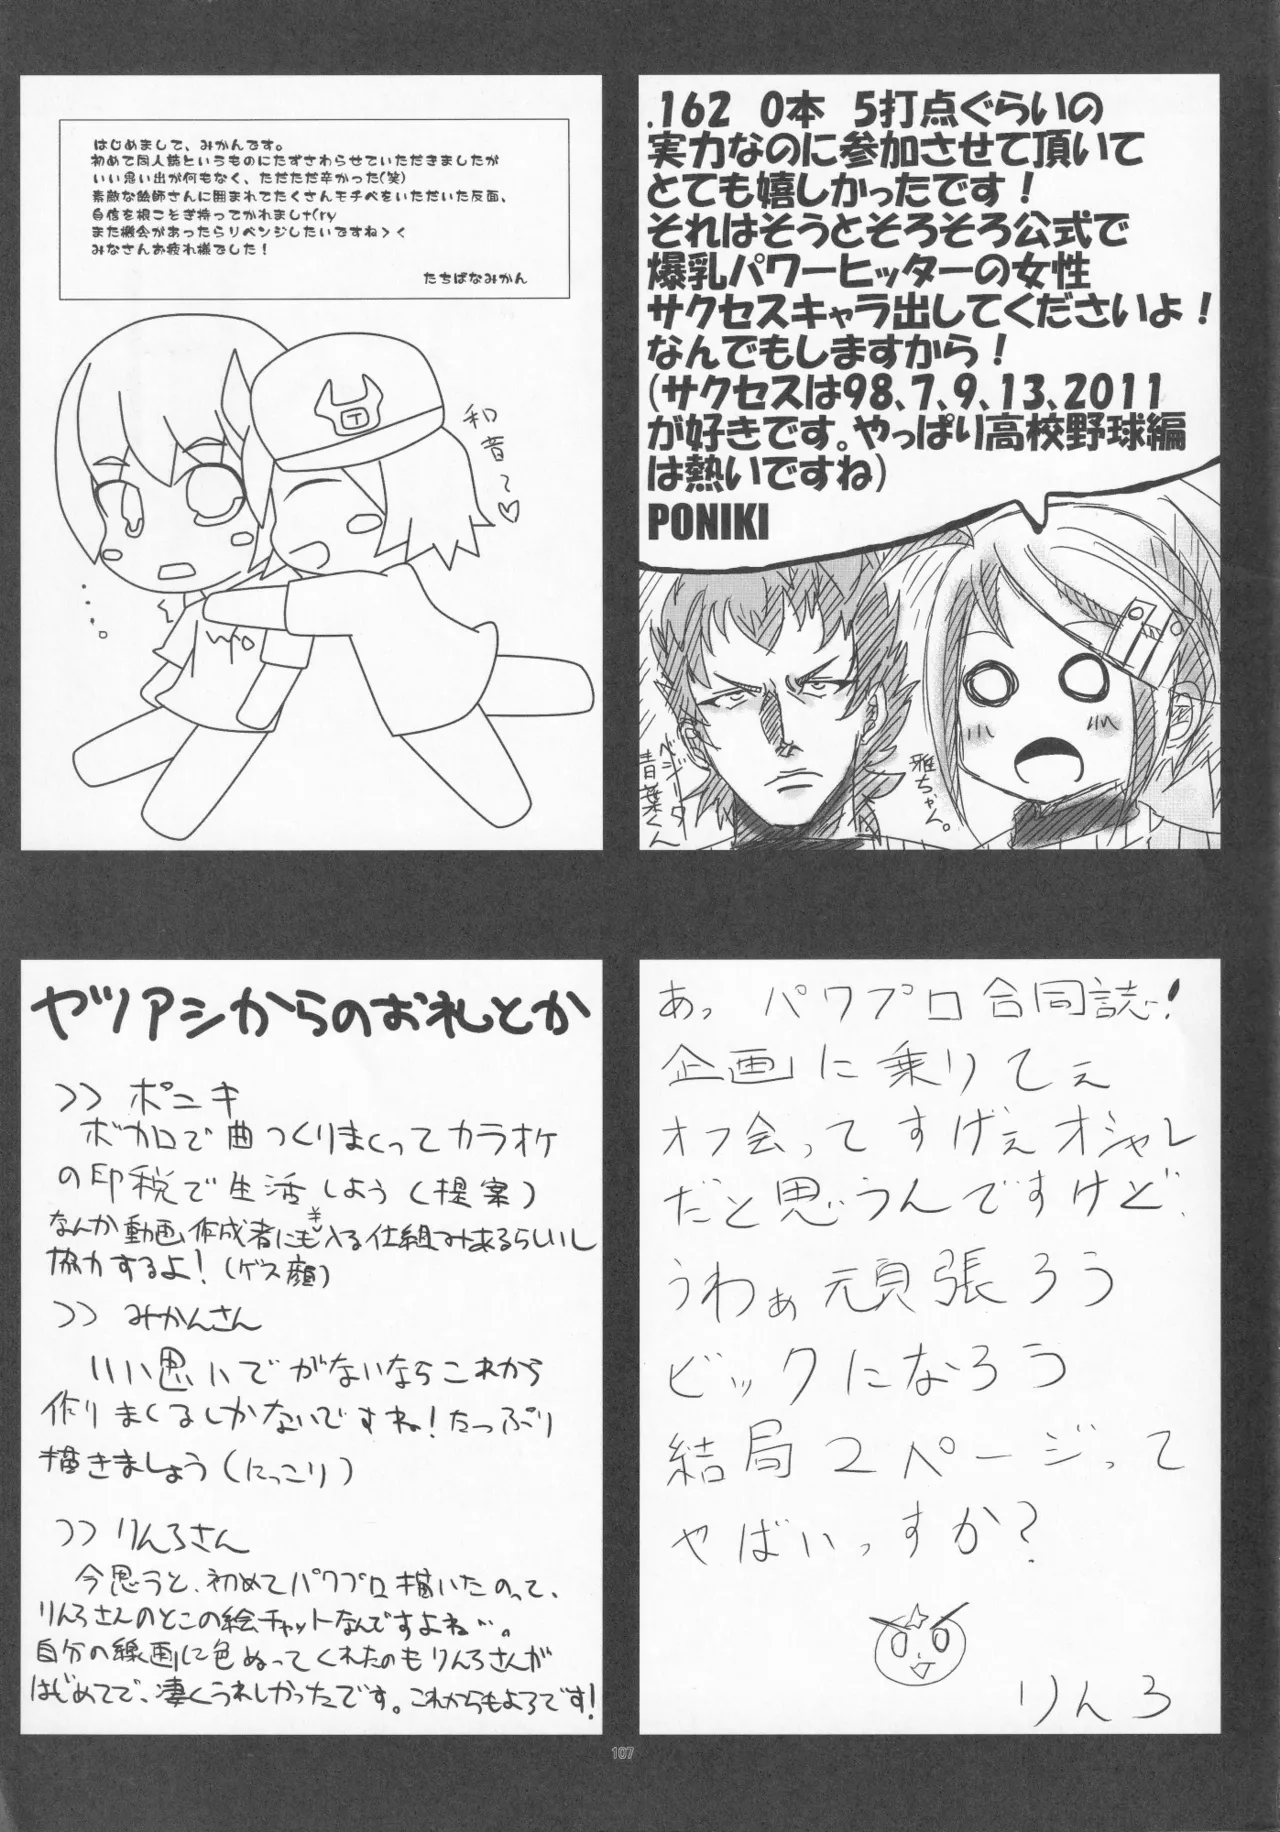 .162　0本　5打点ぐらいの
実力なのに参加させて頂いて
とても嬉しかったです！
それはそうとそろそろ公式で
爆乳パワーヒッターの女性
サクセスキャラ出してくださいよ！
なんでもしますから！
(サクセスは98、7、9、13、2011
が好きです。やっぱり高校野球編
は熱いですね)
PONIKI
雅ちゃん。
ベジータ
青葉くん
はじめまして、みかんです。
初めて同人誌というものにたずさわらせていただきましたが
いい思い出が何もなく、ただただ辛かった(笑)
素敵な絵師さんに囲まれてたくさんモチベをいただいた反面、
自信を根こそぎ持ってかれましt(ry
また機会があったらリベンジしたいですね＞く
みなさんお疲れ様でした！
たちばなみかん
和音〜♡
T
あっ パワプロ合同誌！
企画に乗りてぇ
オフ会ってすげぇオシャレ
だと思うんですけど、
うわぁ頑張ろう
ビックになろう
結局2ページって
やばいっすか？
りんろ
ヤツアシからのお礼とか
>> ポニキ
ボカロで曲つくりまくってカラオケ
の印税で生活しよう(提案)
なんか動画作成者にも¥入る仕組みあるらしいし
協力するよ！(ゲス顔)
>> みかんさん
いい思いでがないならこれから
作りまくるしかないですね！たっぷり
描きましょう(にっこり)
>> りんろさん
今思うと、初めてパワプロ描いたのって、
りんろさんのとこの絵チャットなんですよね…。
自分の線画に色ぬってくれたのもりんろさんが
はじめてで、凄くうれしかったです。これからもよろです！
107